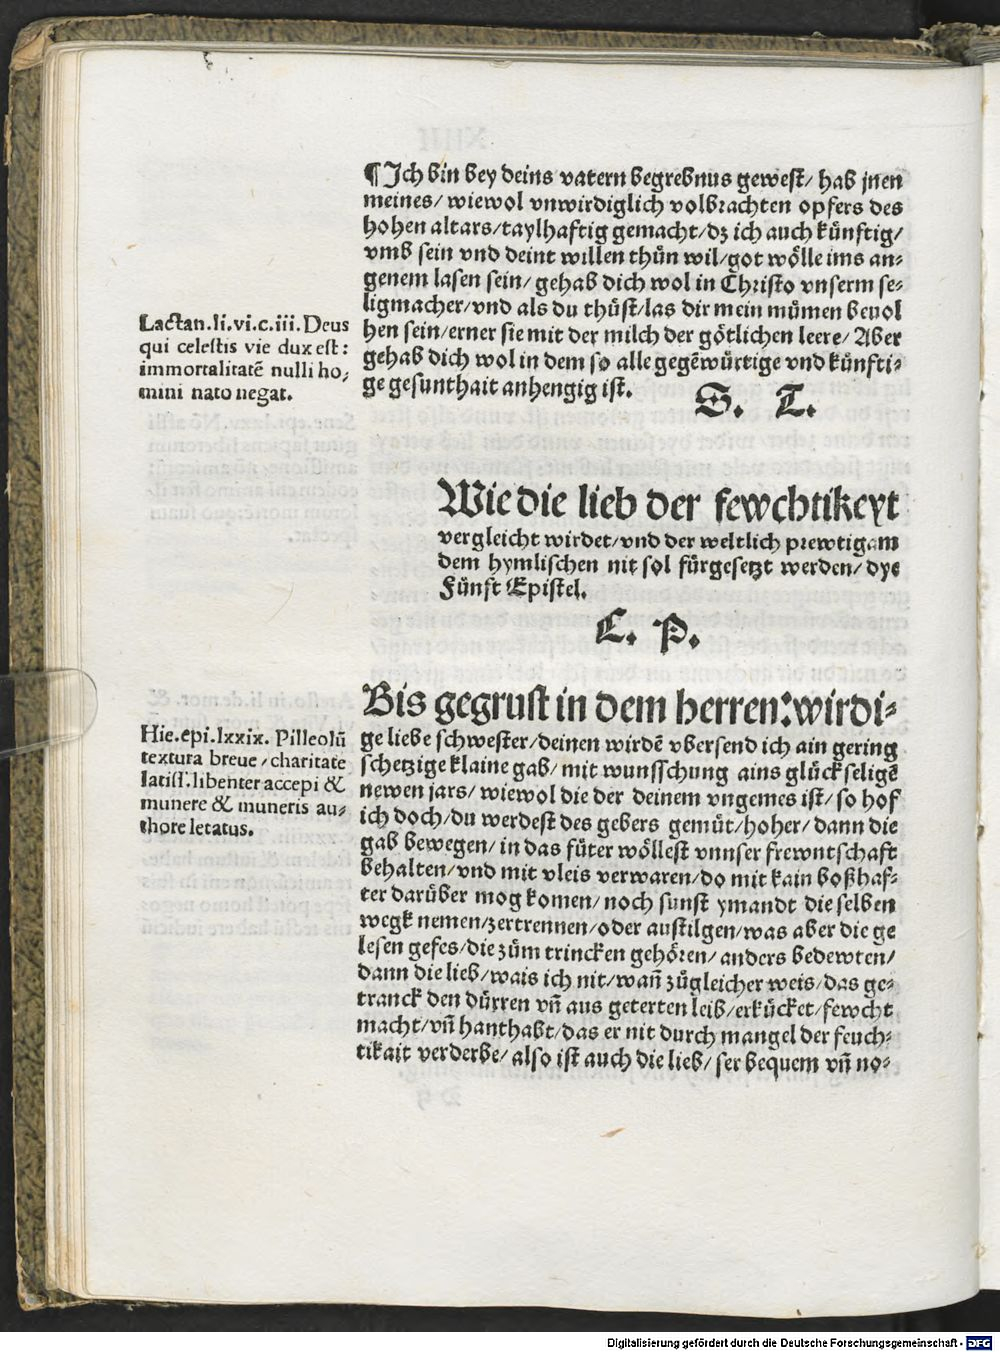 ¶ Ich bin bey deins vatern begrebnus gewest/ hab jnen
meines/ wiewol vnwirdiglich volbrachten opfers des
hohen altars/taylhaftig gemacht/dz ich auch künftig/
vmb sein vnd deint willen thůn wil/got wölle ims an⸗
genem lasen sein/ gehab dich wol in Christo vnserm se⸗
ligmacher/vnd als du thůst/las dir mein můmen beuol
hen sein/erner sie mit der milch der götlichen leere/ Aber
gehab dich wol in dem so alle gegēwürtige vnd künfti⸗
ge gesunthait anhengig ist.
S. T.
Lactan.li.vi.c.iii. Deus
qui celestis vie dux est:
immortalitatē nulli ho⸗
mini nato negat.
Wie die lieb der fewchtikeyt
vergleicht wirdet/vnd der weltlich prewtigam
dem hymlischen nit sol fürgesetzt werden/ dye
Fünft Epistel.
C. P.
Bis gegrust in dem herren: wirdi⸗
ge liebe schwester/deinen wirdē vbersend ich ain gering
schetzige klaine gab/ mit wunsschung ains glückseligē
newen jars/ wiewol die der deinem vngemes ist/ so hof
ich doch/du werdest des gebers gemüt/hoher/ dann die
gab bewegen/ in das fůter wöllest vnnser frewntschaft
behalten/vnd mit vleis verwaren/do mit kain boßhaf⸗
ter darüber mog komen/ noch sunst ymandt die selben
wegk nemen/zertrennen/oder austilgen/was aber die ge
lesen gefes/die zům trincken gehören/ anders bedewten/
dann die lieb/wais ich nit/wañ zůgleicher weis/das ge⸗
tranck den dürren vñ aus geterten leib/erkücket/fewcht
macht/vñ hanthabt/das er nit durch mangel der feuch⸗
tikait verderbe/ also ist auch die lieb/ ser bequem vñ no⸗
Hie.epi.lxxix. Pilleolū
textura breue/charitate
latiss.libenter accepi &
munere & muneris au⸗
thore letatus.
Digitalisierung gefördert durch die Deutsche Forschungsgemeinschaft - DFG